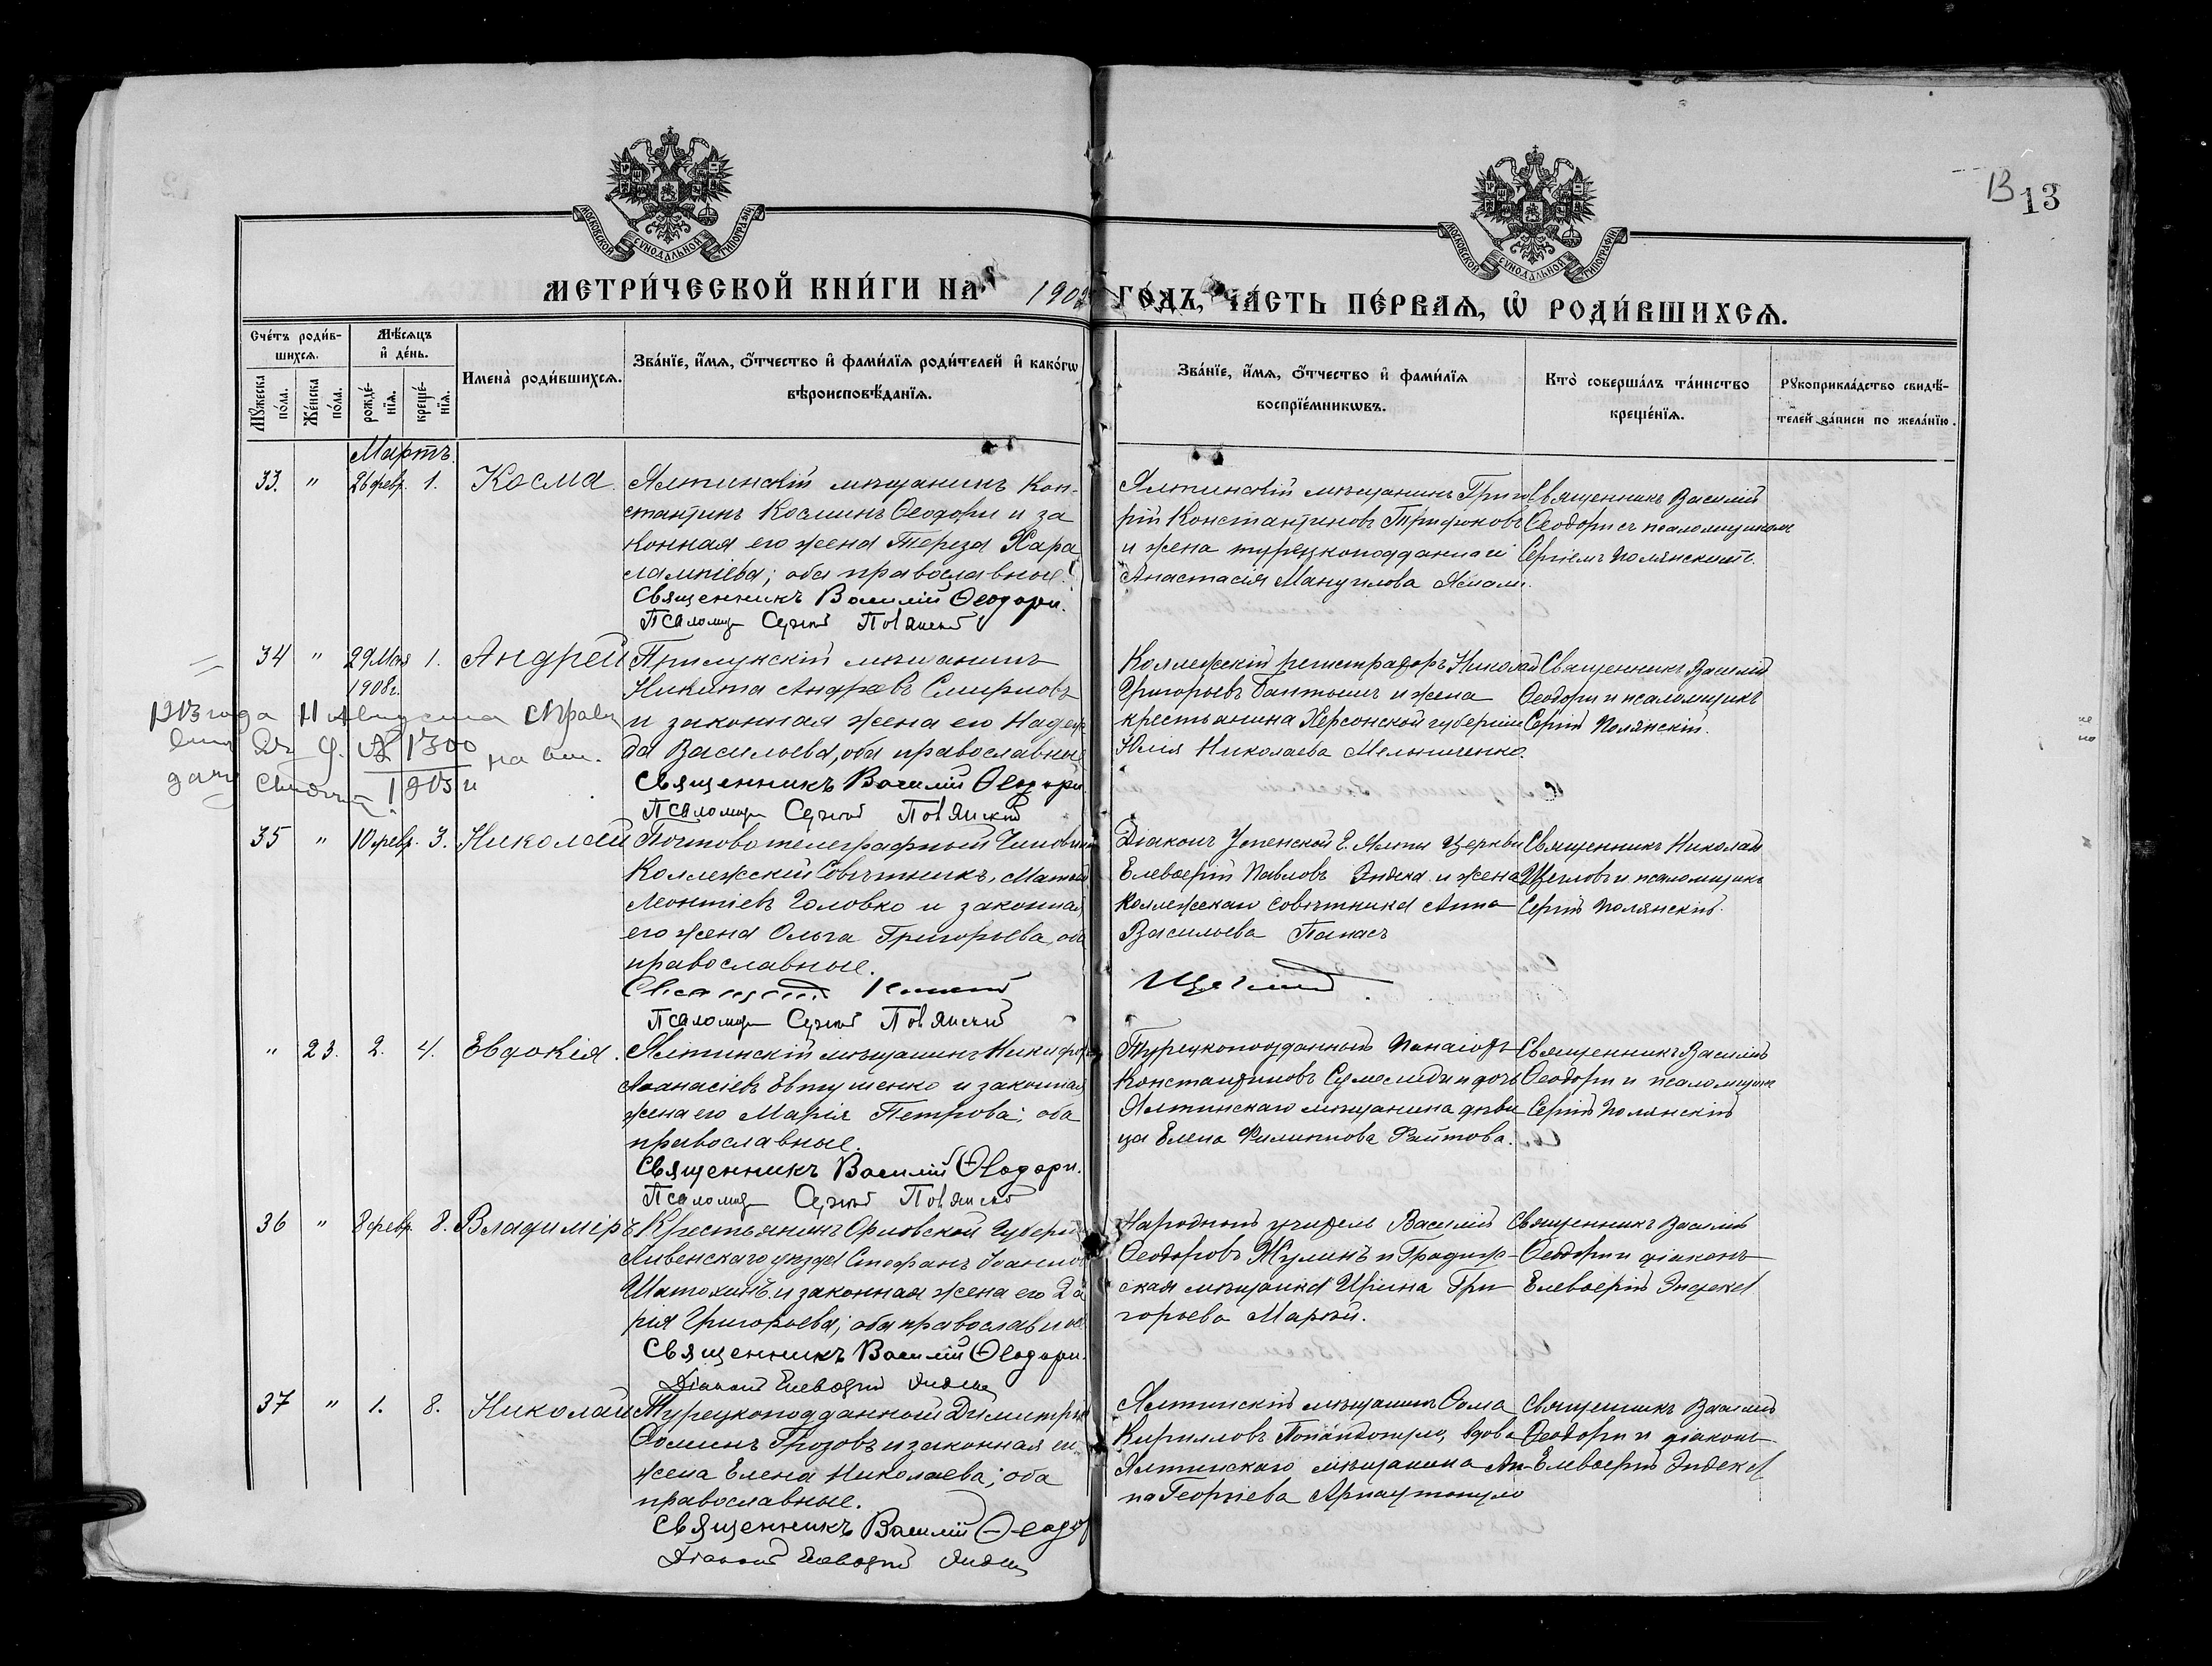 13 13
МОСКОВСКОЙ СѴНОДАЛЬНОЙ ТИПОГРАФІИ
МОСКОВСКОЙ СѴНОДАЛЬНОЙ ТИПОГРАФІИ
МЕТРИ́ЧЕСКОЙ КНИ́ГИ НА 1902 ГО́ДЪ, ЧА́СТЬ ПЕ́РВАѦ, Ѡ҆ РОДИ́ВШИХСѦ.
Сче́тъ роди́в-
шихсѧ.
Мꙋ́жеска по́ла.
Же́нска по́ла.
Мѣ́сѧцъ и҆ де́нь.
рожде́-
нїѧ.
креще́-
нїѧ.
Имена̀ роди́вшихсѧ.
Зва́нїе, и҆́мѧ, ѻ҆́тчество и҆ фами́лїѧ роди́телей и҆ како́гѡ
вѣроисповѣ́данїѧ.
Зва́нїе, и҆́мѧ, ѻ҆́тчество и҆ фами́лїѧ
воспрїе́мникѡвъ.
Кто̀ соверша́лъ та́инство
креще́нїѧ.
Рꙋкоприкла́дство свидѣ́-
телей за́писи по жела́нїю.
Мартъ.
33. " 26 февр. 1. Косма.
Ялтинскій мѣщанинъ Кон-
стантинъ Косминъ Ѳеодори и за
конная его жена Тереза Хара
лампіева; оба православные.
Священникъ Василій Ѳеодори.
Псаломщ Сергій Полянскій
Ялтинскій мѣщанинъ Григо
рій Константиновъ Трифоновъ
и жена турецкоподданнаго
Анастасія Мануилова
Священникъ Василій
Ѳеодори съ псаломщикомъ
Сергіемъ Полянскимъ.
34 " 29 Мая 1908г. 1. Андрей
Прилукскій мѣщанинъ
Никита Андреевъ Смирновъ
и законная жена его Надеж
да Васильева, оба православные
Священникъ Василій Ѳеодори.
Псаломщ Сергій Полянскій
Коллежскій регистраторъ Николай
Григорьевъ и жена
крестьянина Херсонской губерніи
Юлія Николаева Мельниченко.
Священникъ Василій
Ѳеодори и псаломщикъ
Сергій Полянскій.
года 11 Августа
№ 1300
на
35 " 10 февр. 3. Николай
Почтовотелеграфный Чиновникъ
Коллежскій Совѣтникъ, Матвей
Леонтіевъ Головко и законная
его жена Ольга Григорьева, оба
православные.
Псаломщ Сергій Полянскій
Діаконъ Успенской г. Ялты церкви
Елевѳерій Павловъ Эндека и жена
Коллежскаго совѣтника Анна
Васильева Панасъ
Священникъ Николай
Щегловъ и псаломщикъ
Сергій Полянскій.
" 23. 2. 4. Евдокія.
Ялтинскій мѣщанинъ Никифоръ
Аѳанасіевъ Евтушенко и законная
жена его Марія Петрова; оба
православные.
Священникъ Василій Ѳеодори.
Псаломщ Сергій Полянскій
Турецкоподданный Панаіотъ
Константиновъ и дочь
Ялтинскаго мѣщанина дѣви
ца Елена Филиппова
Священникъ Василій
Ѳеодори и псаломщикъ
Сергій Полянскій
36 " 8 февр. 8. Владиміръ
Крестьянинъ Орловской Губерніи
Ливенскаго уѣзда Стефанъ Іоанновъ
Шатохинъ и законная жена его Да
рія Григорьева; оба православные.
Священникъ Василій Ѳеодори.
Діаконъ Елевѳерій Эндека
Народный учитель Василій
Ѳеодоровъ Жулинъ и Градиж-
ская мѣщанка Ирина Гри
горьева
Священникъ Василій
Ѳеодори и діаконъ
Елевѳерій Эндека
37 " 1. 8. Николай
Турецкоподданный Димитрій
Ѳоминъ Грозовъ и законная его
жена Елена Николаева; оба
православные.
Священникъ Василій Ѳеодори
Діаконъ Елевѳерій Эндека
Ялтинскій мѣщанинъ Ѳома
Кирилловъ Попандопуло, вдова
Ялтинскаго мѣщанина Ан-
на Георгіева Арнаутопуло
Священникъ Василій
Ѳеодори и діаконъ
Елевѳерій Эндека